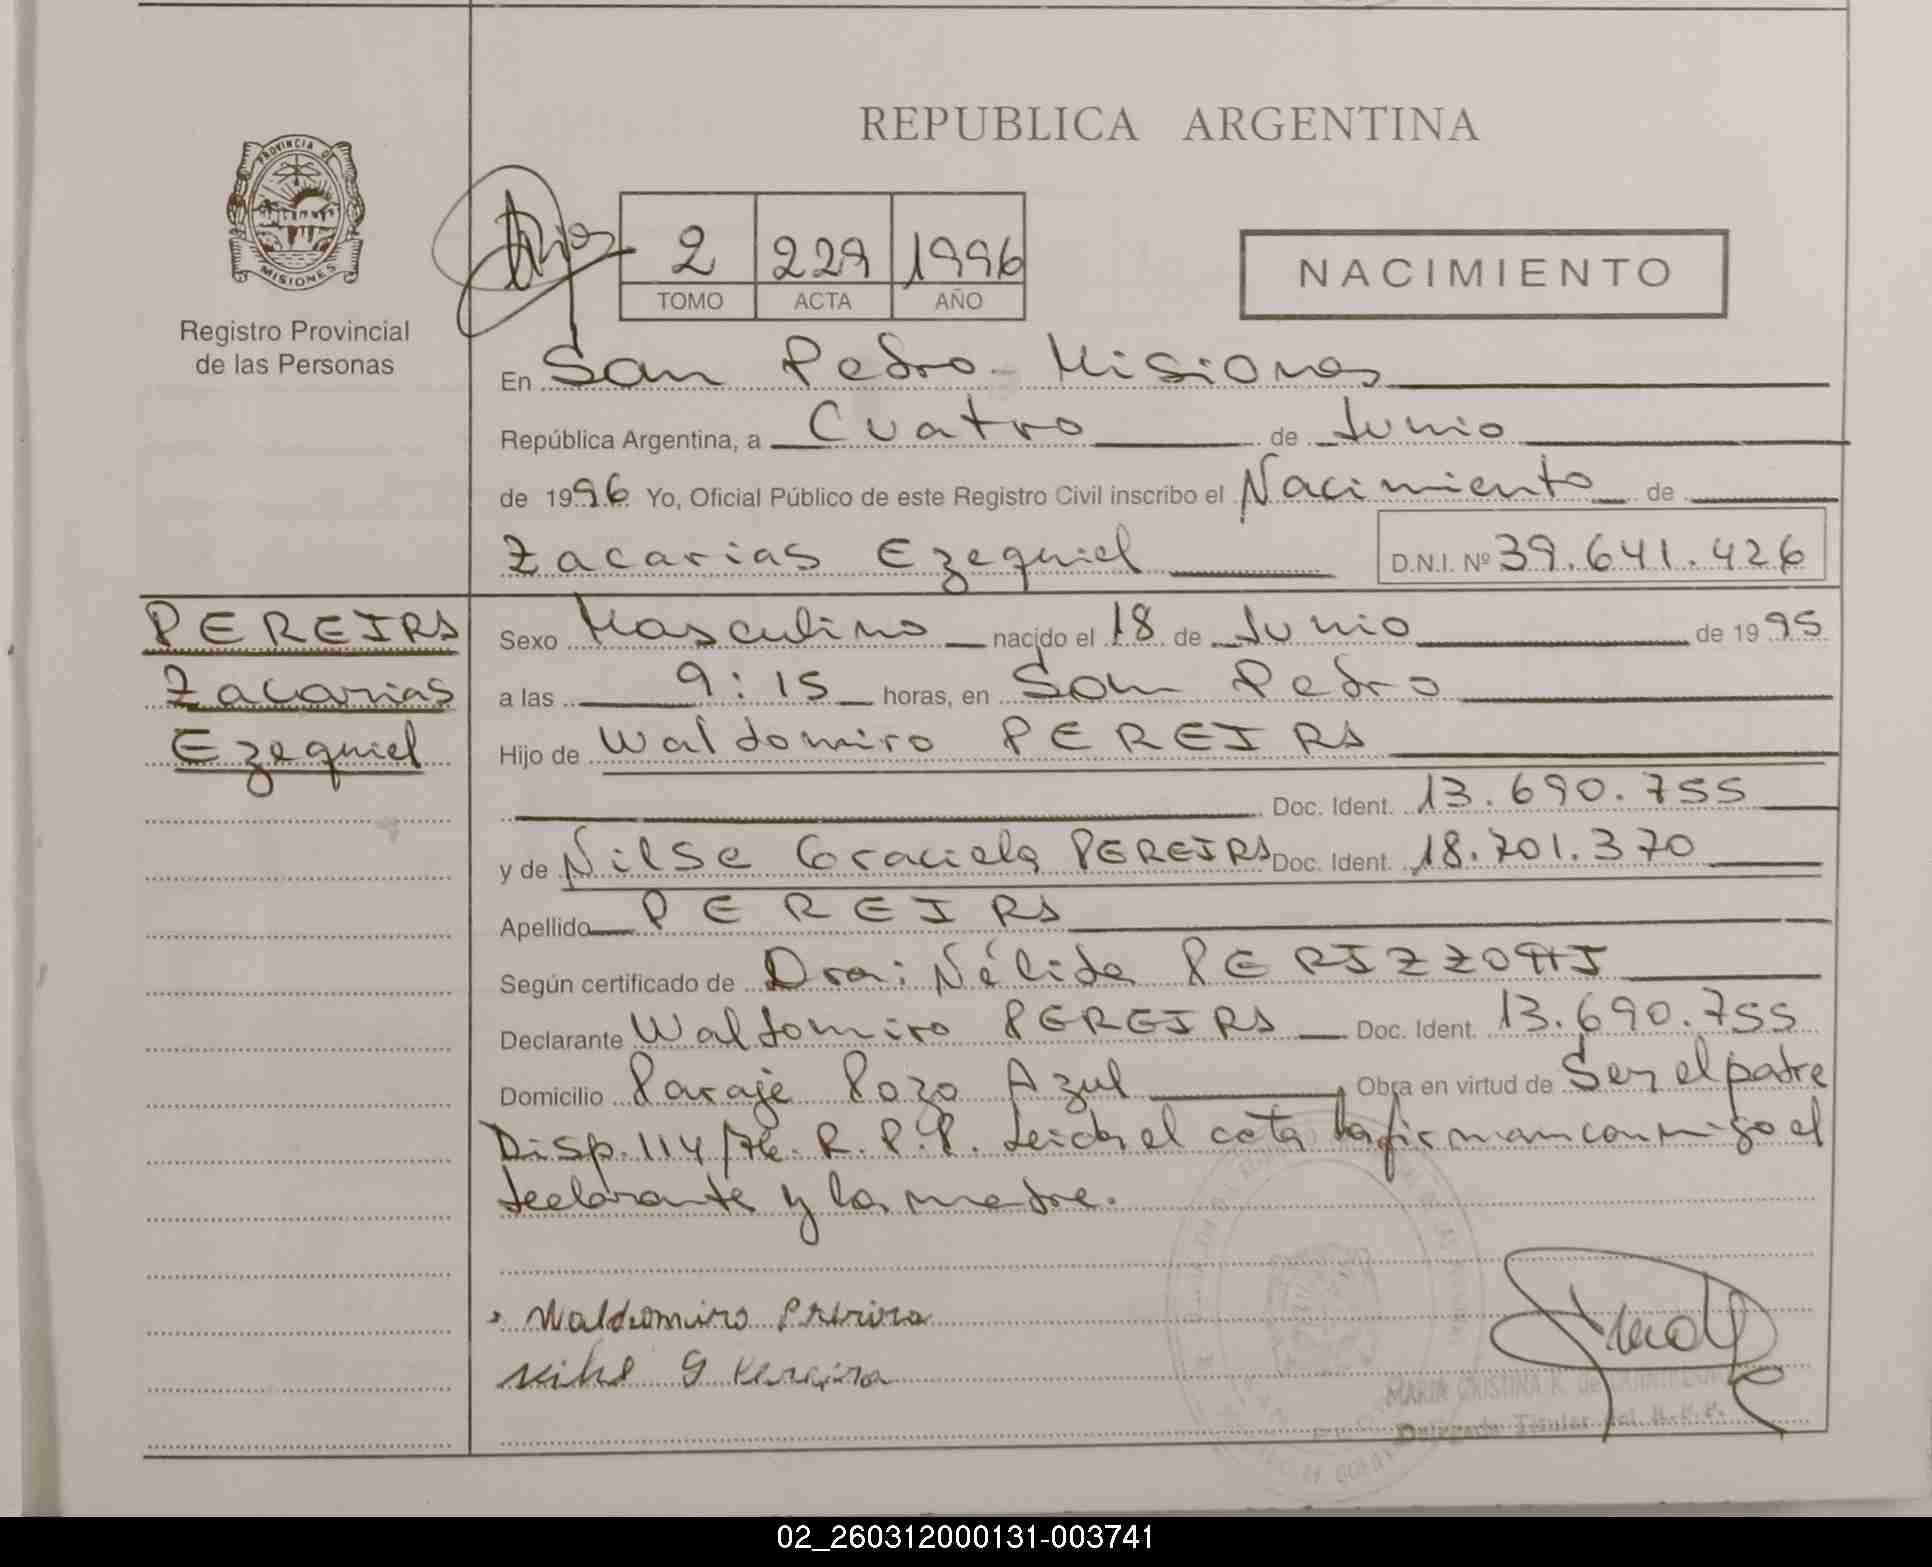 REPUBLICA ARGENTINA
PROVINCIA DE
MISIONES
Registro Provincial
de las Personas
2 229 1996
TOMO ACTA AÑO
NACIMIENTO
En San Pedro - Misiones
República Argentina, a Cuatro de Junio
de 1996 Yo, Oficial Público de este Registro Civil inscribo el Nacimiento de
Zacarias Ezequiel D.N.I. Nº 39.641.426
PEREIRA
Zacarias
Ezequiel
Sexo Masculino nacido el 18 de Junio de 1995
a las 9:15 horas, en San Pedro
Hijo de Waldomiro PEREIRA
Doc. Ident. 13.690.755
y de Nilse Graciela PEREIRA Doc. Ident. 18.701.370
Apellido PEREIRA
Según certificado de Dra: Nélida PERIZZOTTI
Declarante Waldomiro PEREIRA Doc. Ident. 13.690.755
Domicilio Paraje Pozo Azul Obra en virtud de Ser el padre
Disp. 114/76. R. P. P. Leida el acta la firman conmigo el
declarante y la madre.
Waldomiro Pereira
Nilse G Pereira
MARIA CRISTINA K. de
Delegada Titular del R.P.P.
02_260312000131-003741